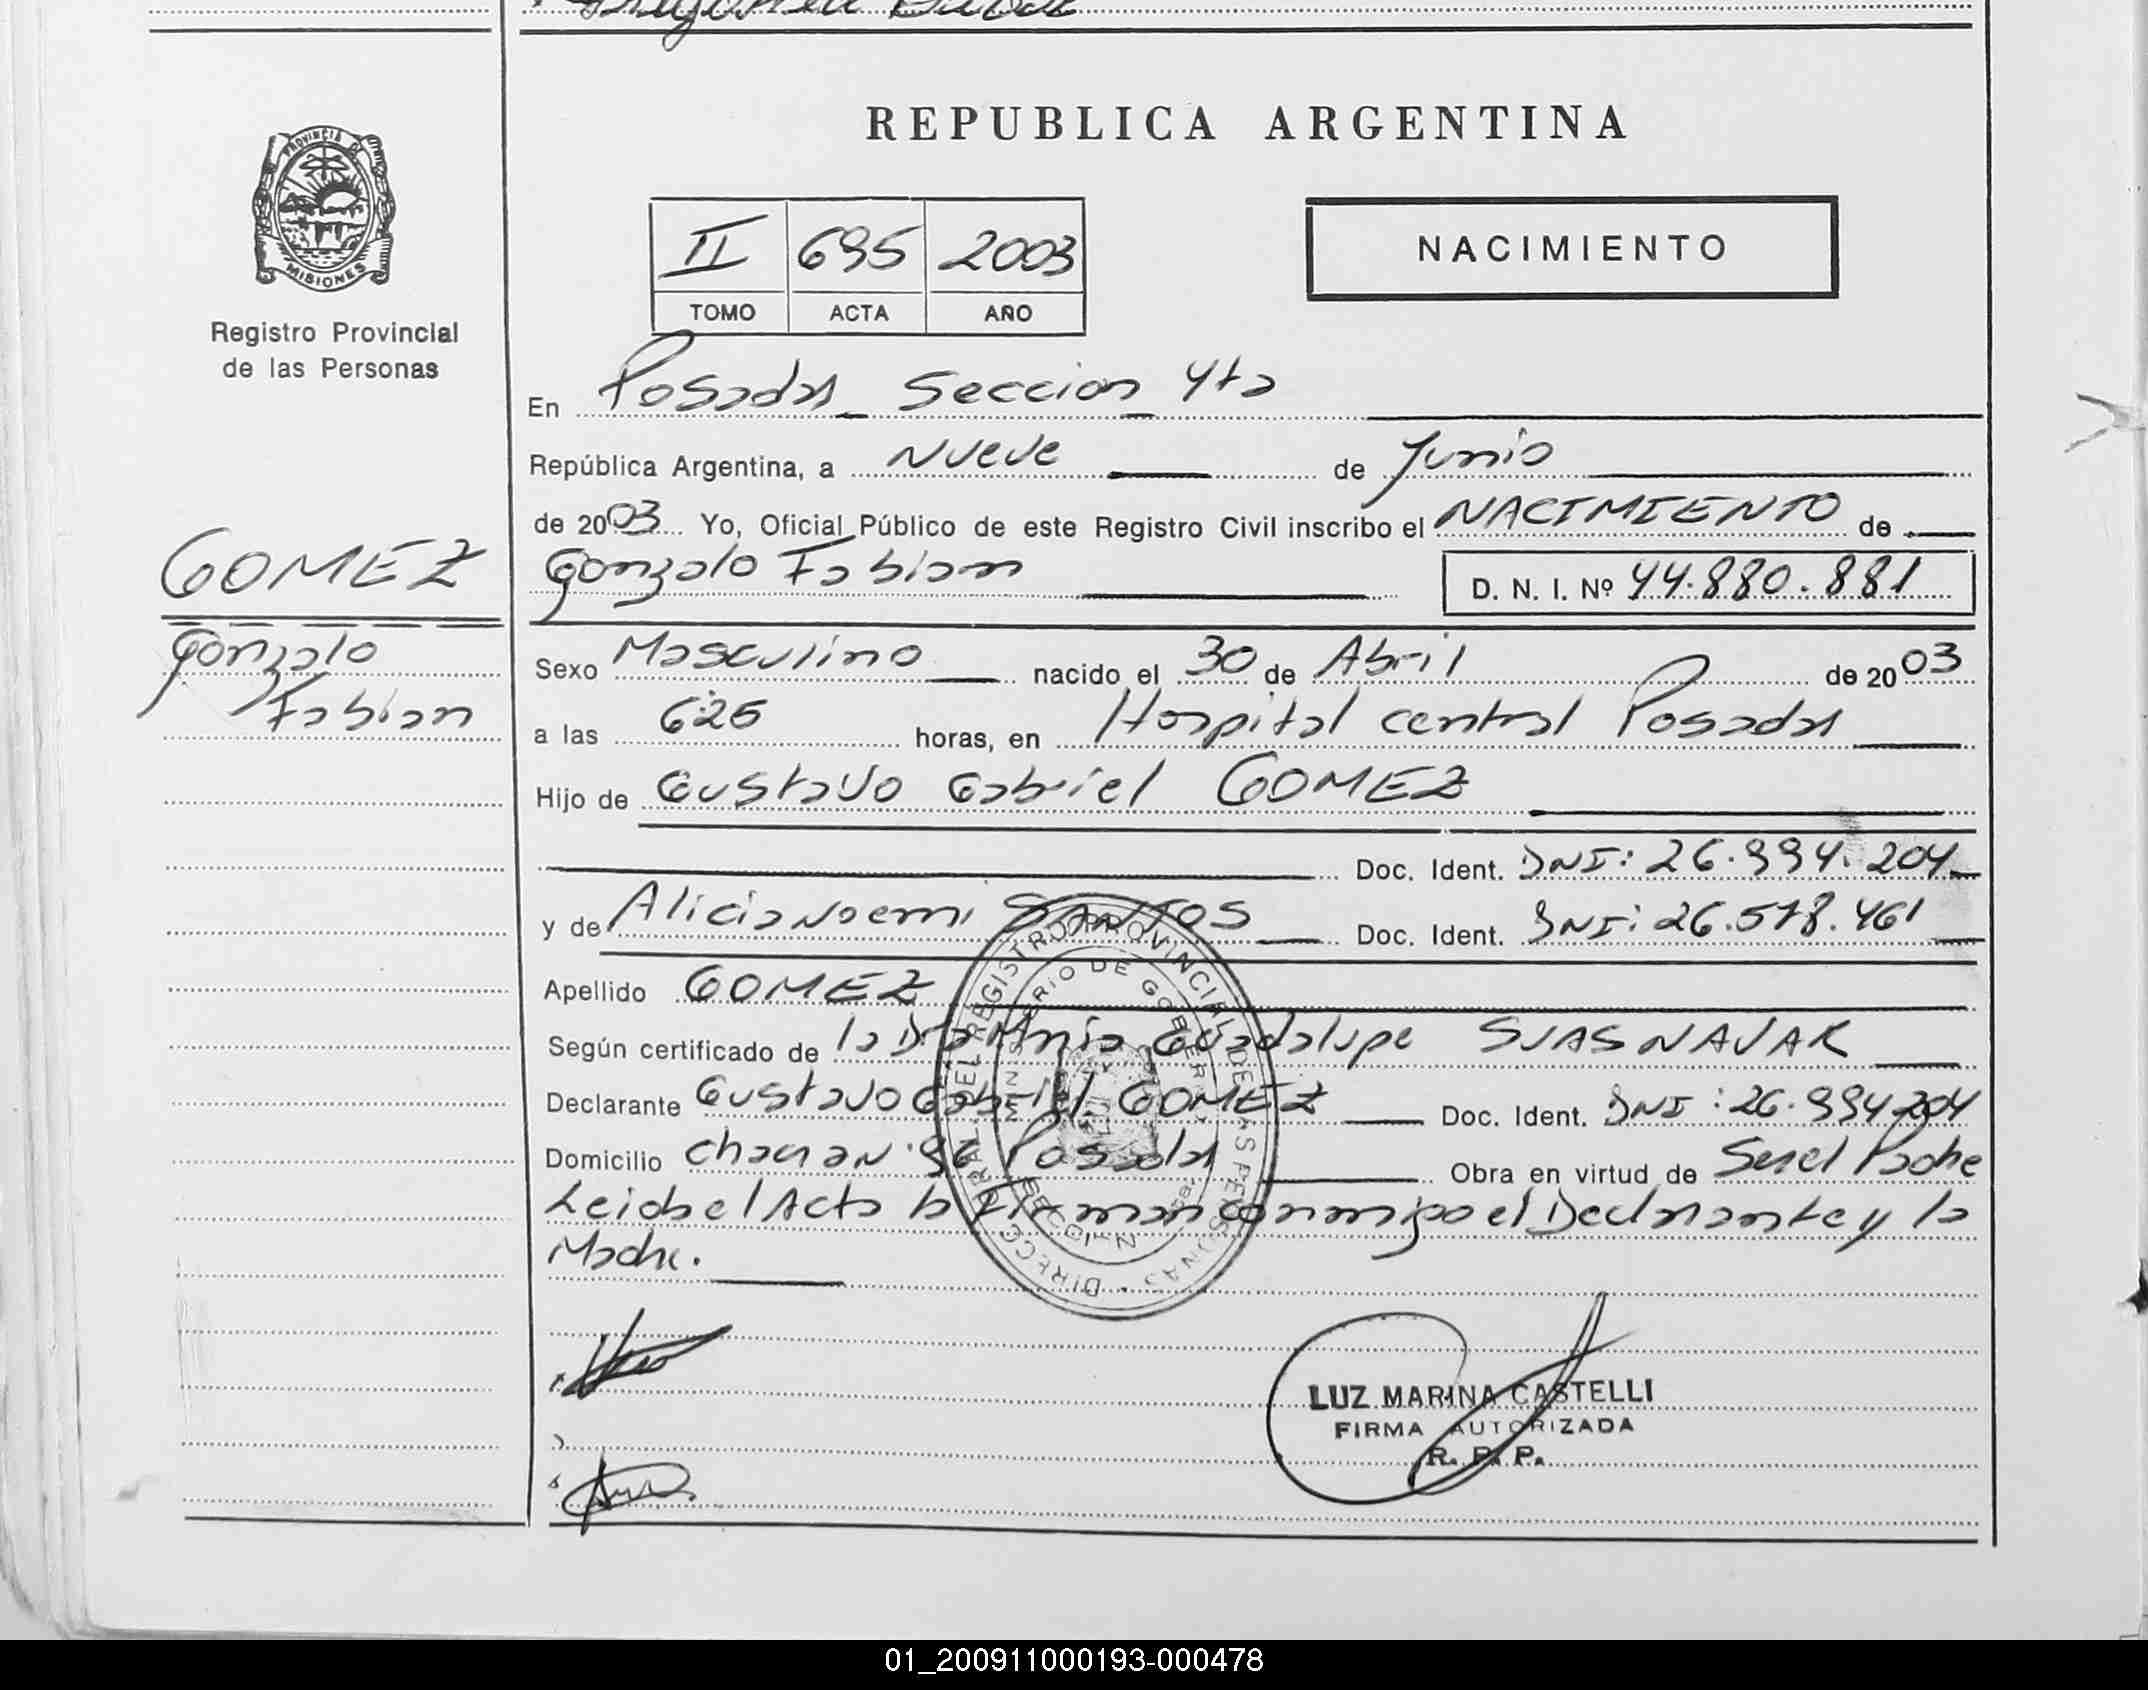 REPUBLICA ARGENTINA
PROVINCIA DE
MISIONES
Registro Provincial
de las Personas
II 695 2003
TOMO ACTA AÑO
NACIMIENTO
En Posadas - Seccion 4ta
República Argentina, a Nueve de Junio
de 2003 Yo, Oficial Público de este Registro Civil inscribo el NACIMIENTO de
Gonzalo Fabian D. N. I. Nº 44.880.881
GOMEZ
Gonzalo
Fabian
Sexo Masculino nacido el 30 de Abril de 2003
a las 6:25 horas, en Hospital central Posadas
Hijo de Gustavo Gabriel GOMEZ
Doc. Ident. DNI: 26.994.204
y de Alicia Noemi SANTOS Doc. Ident. DNI: 26.578.461
Apellido GOMEZ
Según certificado de la Dra Maria Guadalupe
Declarante Gustavo Gabriel GOMEZ Doc. Ident. DNI: 26.994204
Domicilio Posadas Obra en virtud de Ser el Padre
Leida el Acta la Firman conmigo el Declarante y la
Madre.
DIRECC. GRAL. DEL REGISTRO PROVINCIAL DE LAS PERSONAS
MINISTERIO DE GOBIERNO
SECCION
LUZ MARINA CASTELLI
FIRMA AUTORIZADA
R. P. P.
01_200911000193-000478